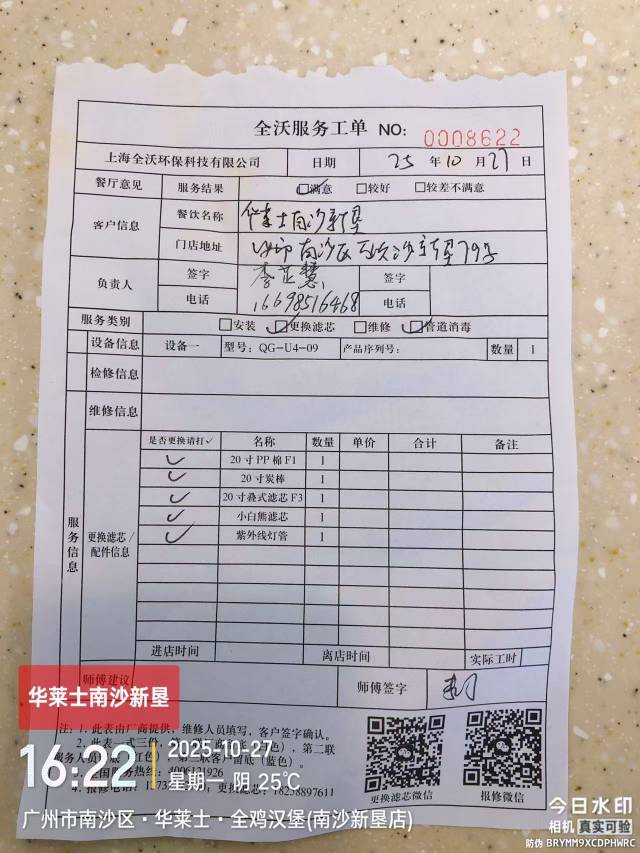 全沃服务工单 NO: 0008622
上海全沃环保科技有限公司 日期 25 年 10 月 27 日
餐厅意见 服务结果 ☑满意 □较好 □较差不满意
客户信息 餐饮名称 华莱士南沙新垦
门店地址 南沙区 沙新垦79号
负责人 签字 李芷慧 签字
电话 16698516468 电话
服务类别 □安装 ☑更换滤芯 □维修 ☑管道消毒
设备信息 设备一 型号: QG-U4-09 产品序列号: 数量 1
检修信息
维修信息
服务信息
更换滤芯/配件信息
是否更换请打✓ 名称 数量 单价 合计 备注
✓ 20寸PP棉F1 1
✓ 20寸炭棒 1
✓ 20寸叠式滤芯F3 1
✓ 小白熊滤芯 1
✓ 紫外线灯管 1
进店时间 离店时间 实际工时
师傅建议 师傅签字
华莱士南沙新垦
注: 1. 此表由厂商提供, 维修人员填写, 客户签字确认。
2. 此表一式三份, 色), 第二联
服务人员 红色), 第三联客户留底(蓝色)。
国服务热线: 926
4. 报修电话: 173 18258897611
更换滤芯微信 报修微信
16:22 2025-10-27
星期一 阴 25℃
广州市南沙区·华莱士·全鸡汉堡(南沙新垦店)
今日水印
相机 真实可验
防伪 BRYMM9XCDPHWRC